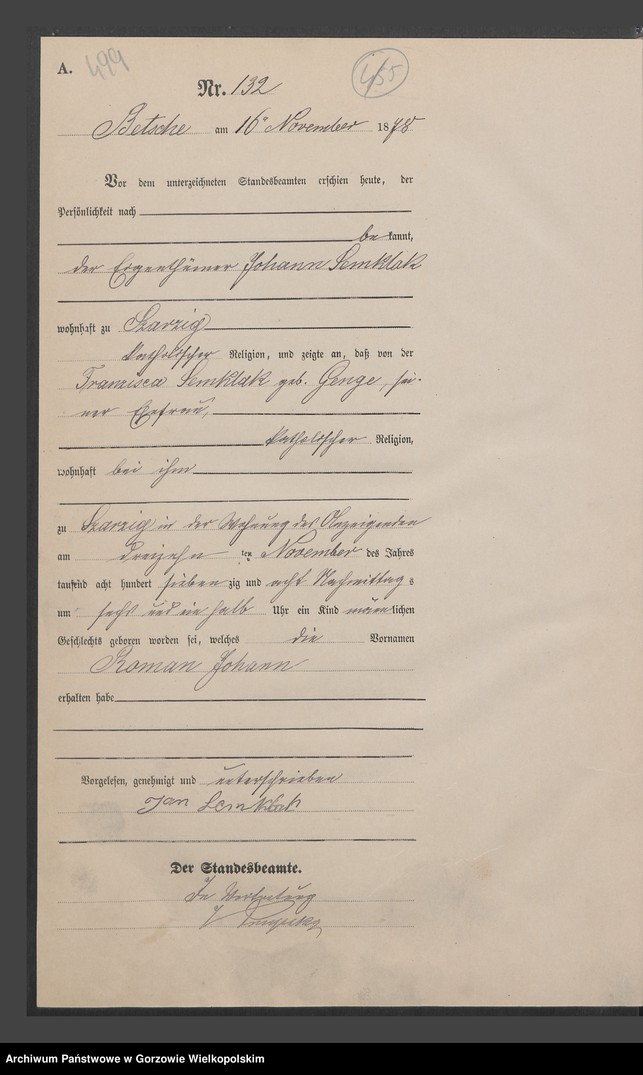 A.
499
455
Nr. 132
Betsche am 16ten November 1878
Vor dem unterzeichneten Standesbeamten erschien heute, der
Persönlichkeit nach
bekannt,
der Eigenthümer Johann Semklak
wohnhaft zu Szarzig
katholischer Religion, und zeigte an, daß von der
Franzisca Semklak geb. Genge, sei-
ner Ehefrau,
katholischer Religion,
wohnhaft bei ihm
zu Szarzig in der Wohnung des Anzeigenden
am dreizehn ten November des Jahres
tausend acht hundert siebenzig und acht Nachmittags
um sechs und ein halb Uhr ein Kind männlichen
Geschlechts geboren worden sei, welches die Vornamen
Roman Johann
erhalten habe
Vorgelesen, genehmigt und unterschrieben
Jan Semklak
Der Standesbeamte.
In Vertretung
Archiwum Państwowe w Gorzowie Wielkopolskim